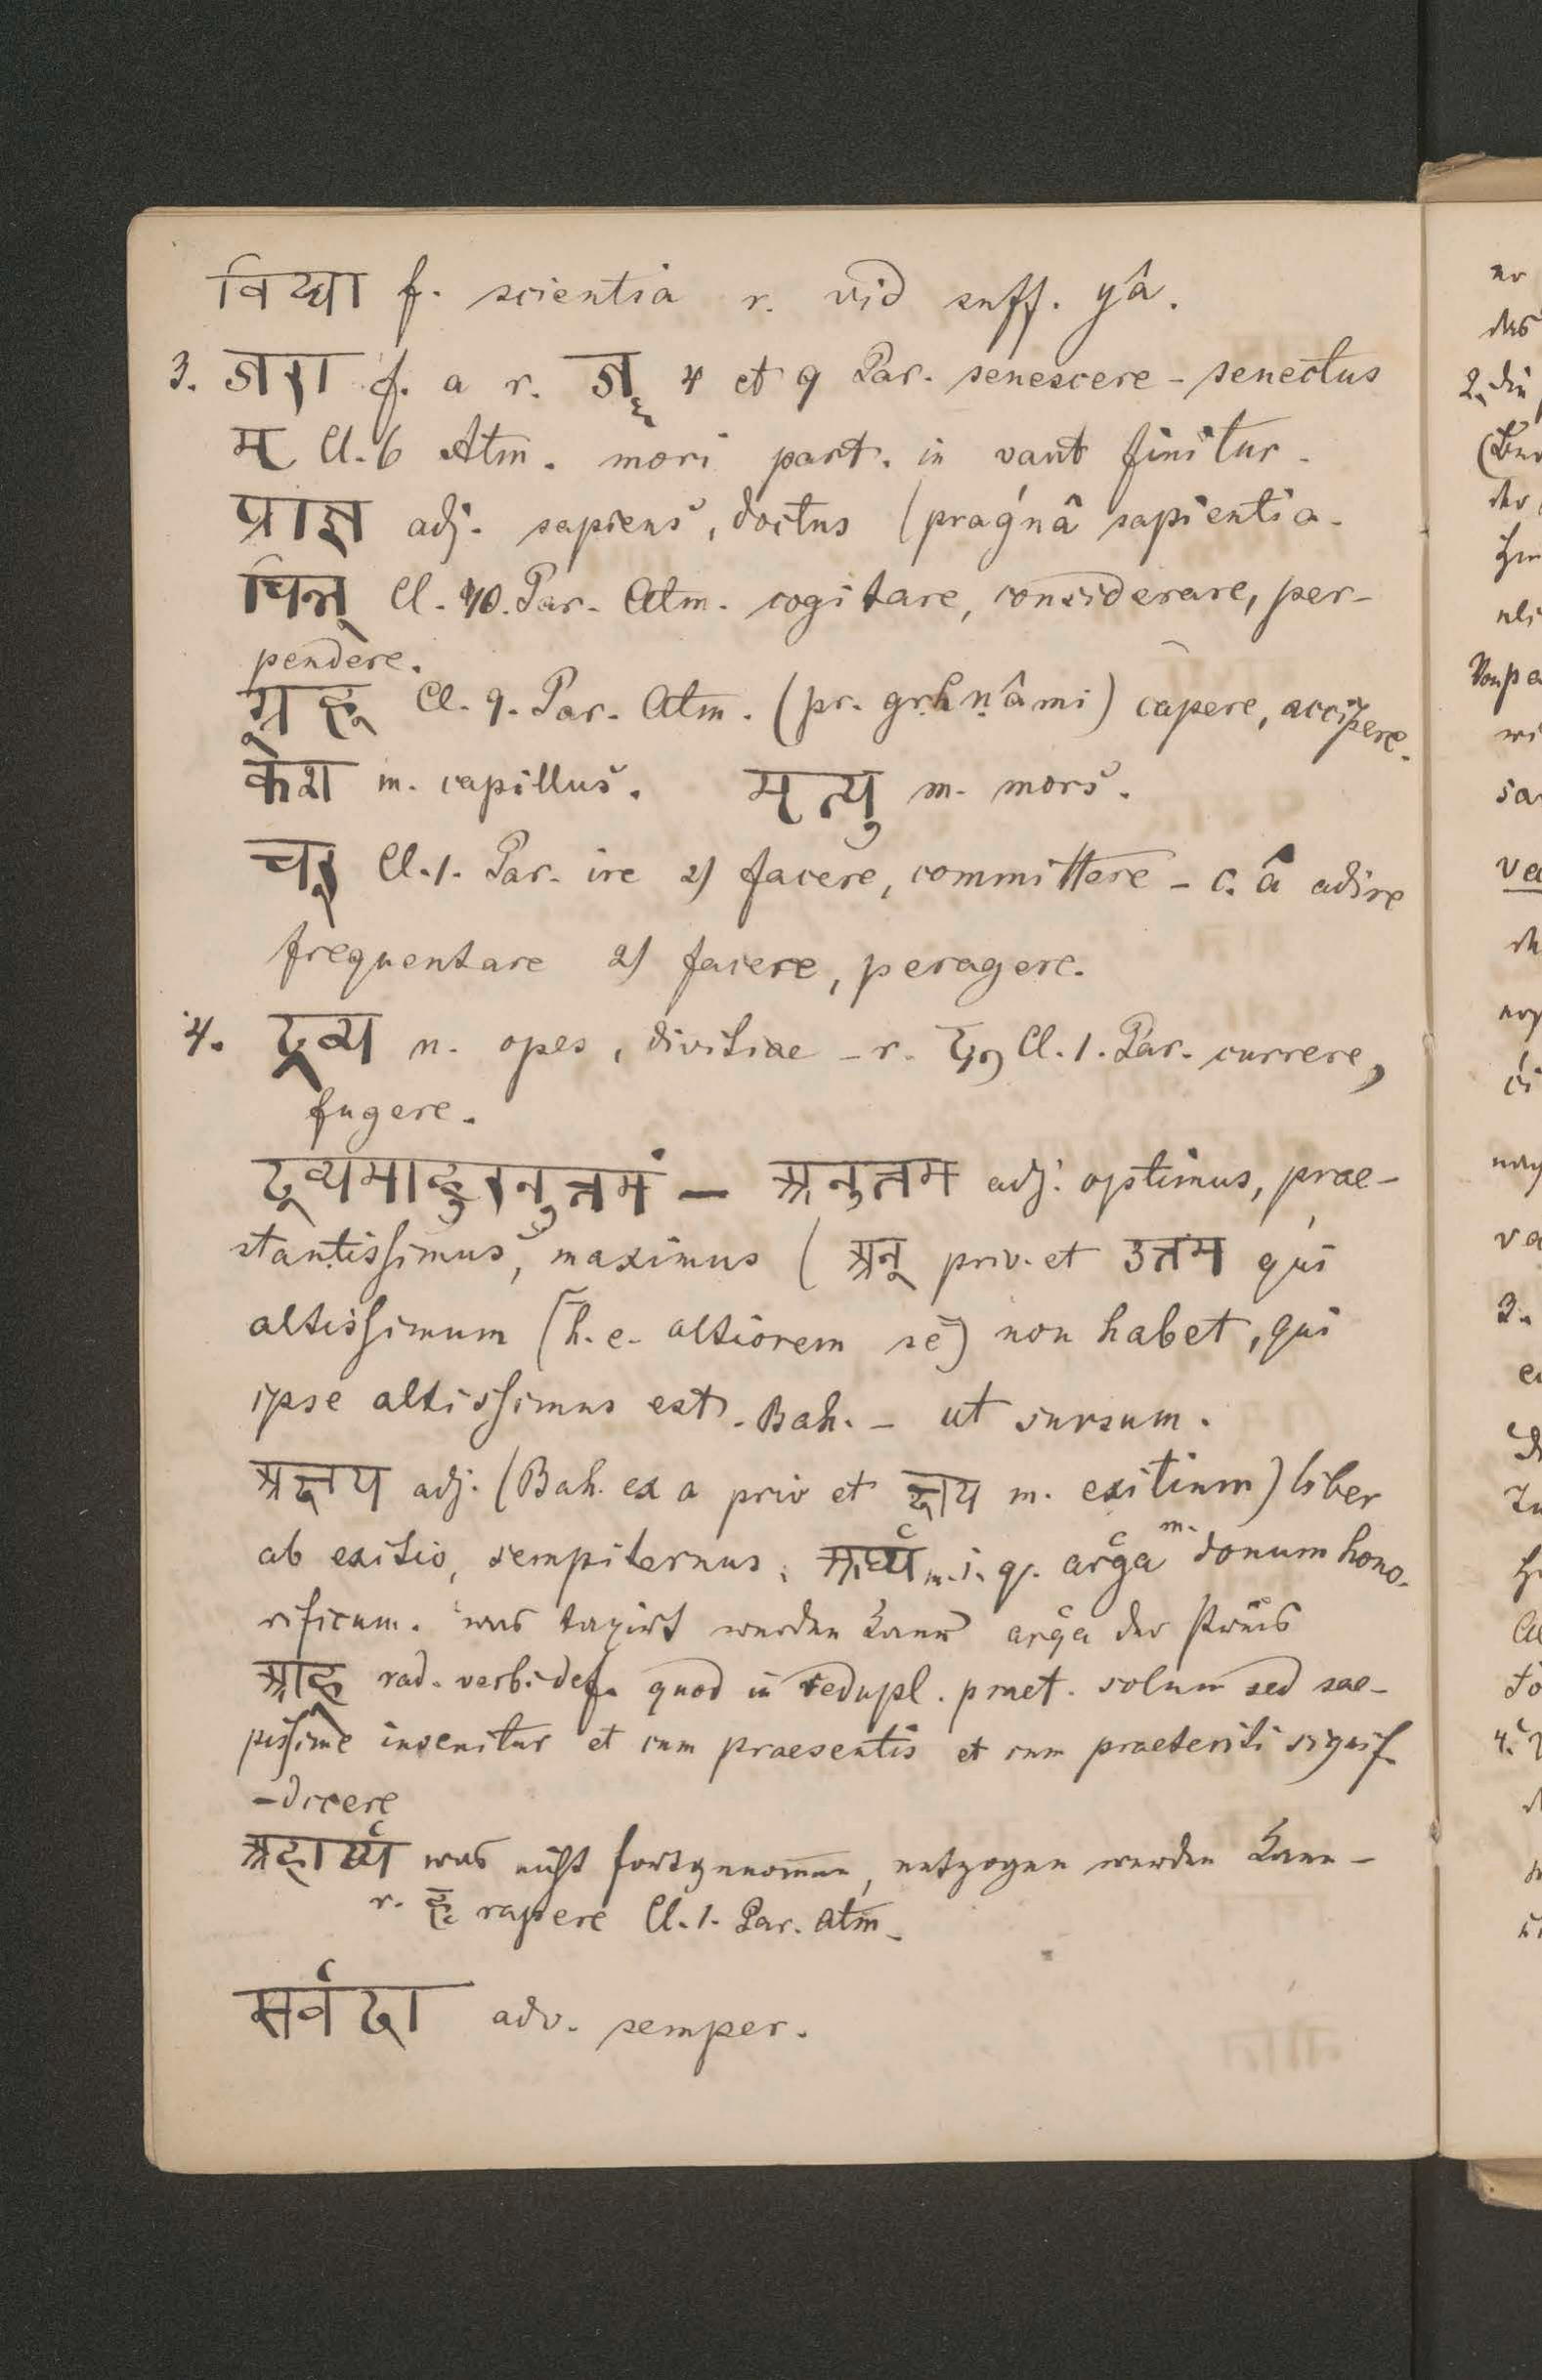 विद्या f. scientia r. vid suff. yâ.
3. जरा f. a r. जॄ 4 et 9 Par. senescere - senectus
मृ Cl. 6 Atm. mori part. in vant finitur.
प्राज्ञ adj. sapiens, doctus (praǵnâ sapientia.
चिन्त् Cl. 10. Par. Atm. cogitare, considerare, per-
pendere.
ग्रह् Cl. 9. Par. Atm. (pr. gṛhṇâmi) capere, accipere.
केश m. capillus. मृत्यु m. mors.
चर् Cl. 1. Par. ire 2) facere, committere - c. â adire
frequentare 2) facere, peragere.
4. द्रव्य n. opes, divitiae - r. द्रु Cl. 1. Par. currere,
fugere.
द्रव्यमाहुरनुत्तमं — अनुत्तम adj. optimus, prae-
stantissimus, maximus (अन् priv. et उत्तम qui
altissimum (h. e. altiorem se) non habet, qui
ipse altissimus est. Bah. - ut sursum.
अक्षय adj. (Bah. ex a priv et क्षय m. exitium) liber
ab exitio, sempiternus. अर्घ्य m. i. q. arǵa m. donum hono-
rificum. was taxirt werden kann arǵa der Preis
अह् rad. verbi def. quod in redupl. praet. solum sed sae-
pissime invenitur et cum praesentis et cum praeteriti signif.
- dicere
अहार्य्य was nicht fortgenommen, entzogen werden kann -
r. हृ rapere Cl. 1. Par. Atm.
सर्वदा adv. semper.
er
das
2. die
der
va
3.
4.